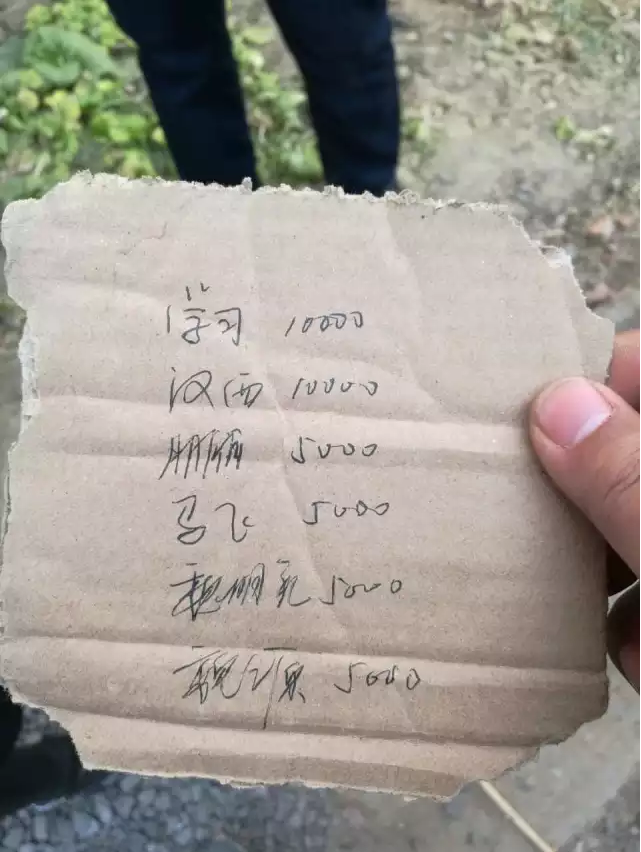 学习 10000
汉西 10000
5000
马飞 5000
魏明礼 5000
魏源 5000